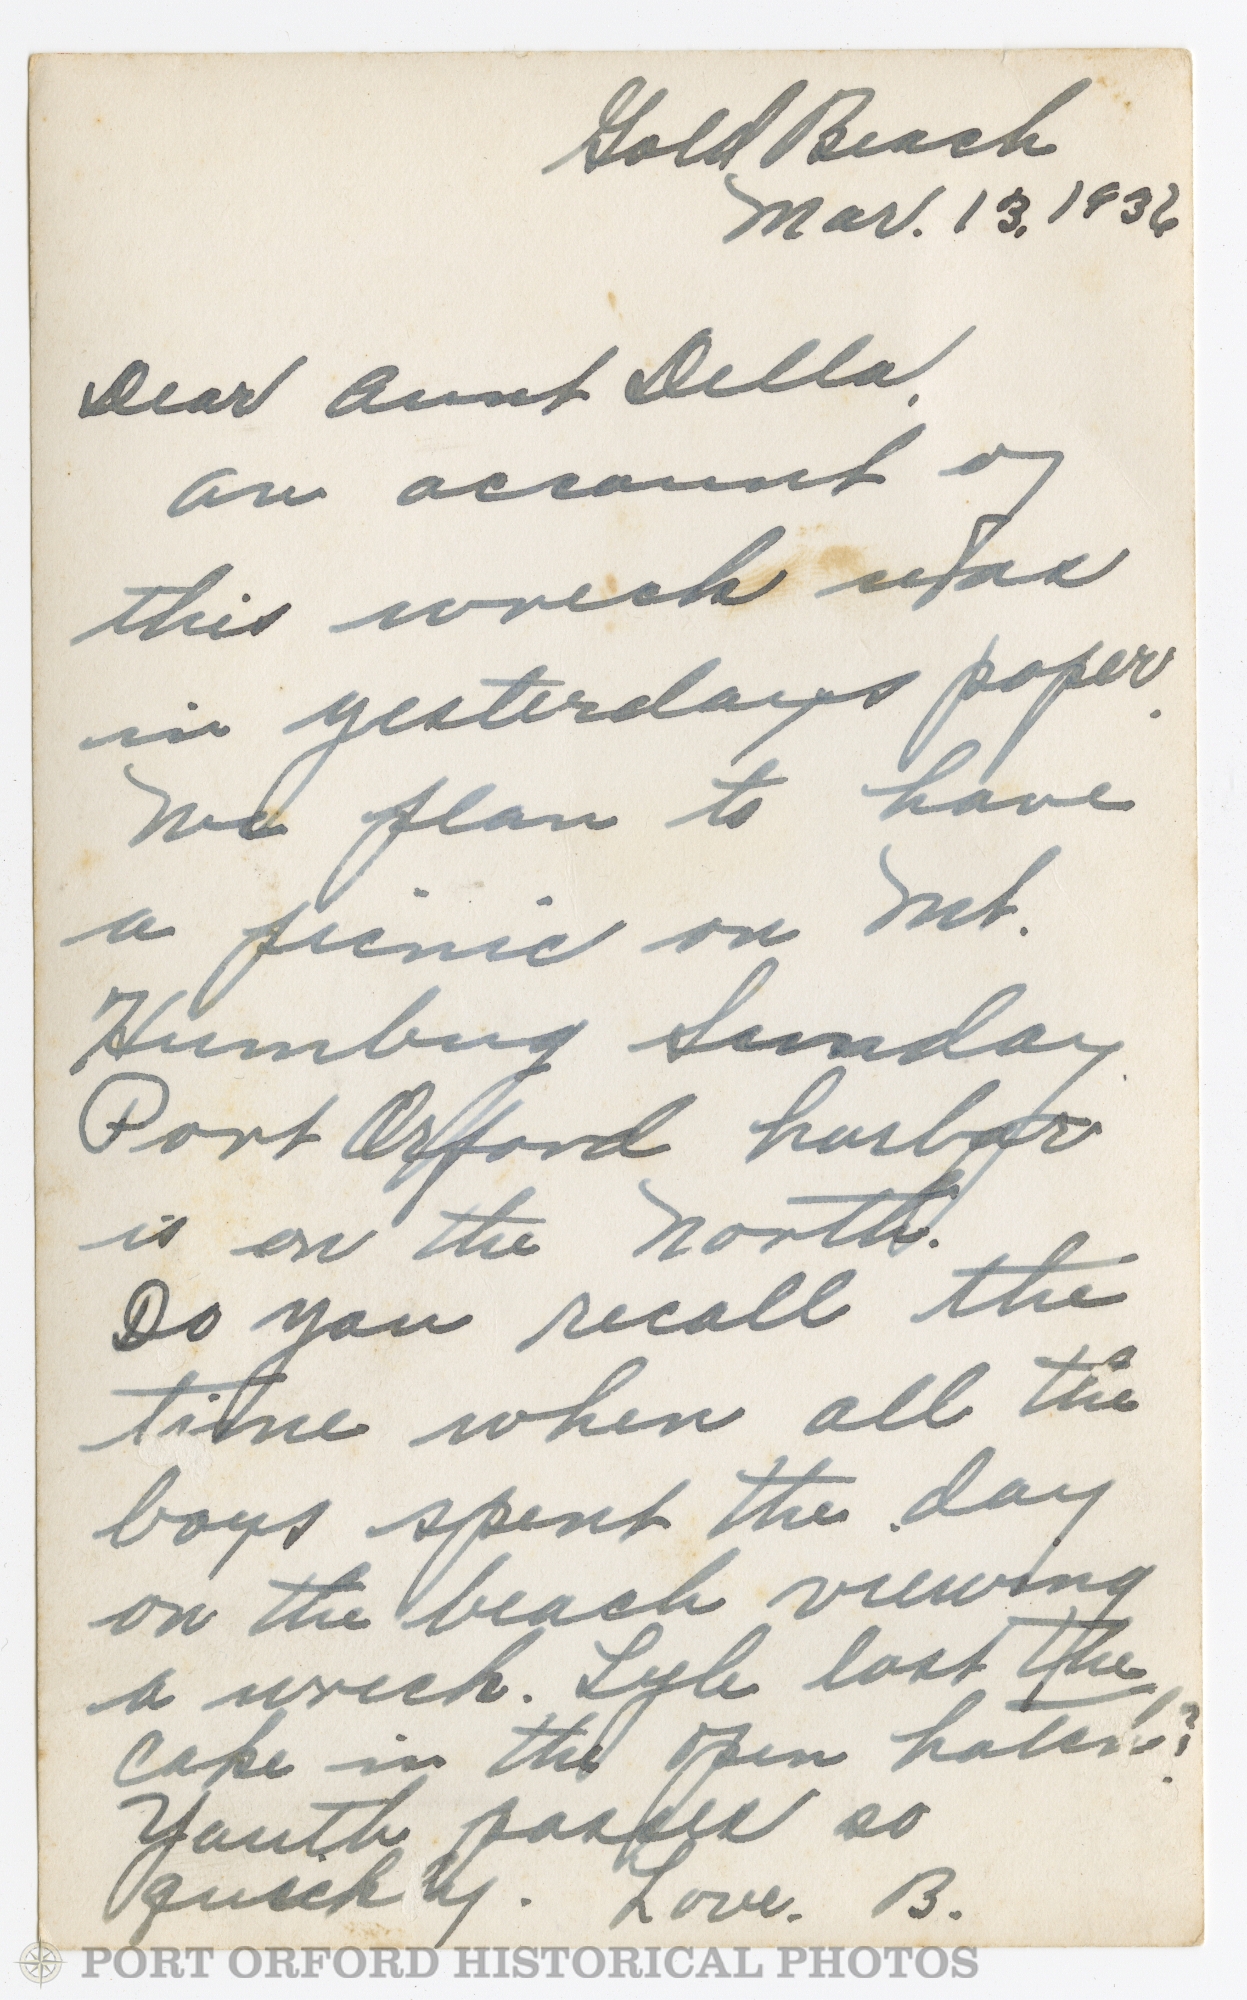 Gold Beach
Mar. 13, 1936
Dear Aunt Della,
An account of
this wreck was
in yesterdays paper.
We plan to have
a picnic on Mt.
Humbug Sunday.
Port Orford harbor
is on the North.
Do you recall the
time when all the
boys spent the day
on the beach viewing
a wreck. Lyle lost the
cake in the open hatch?
Youth passes so
quickly. Love. B.
PORT ORFORD HISTORICAL PHOTOS